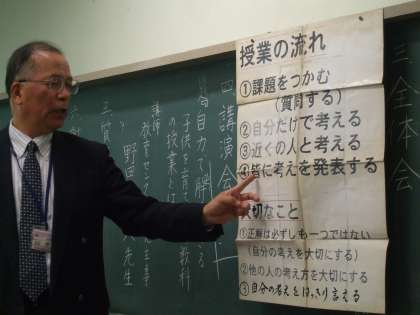 三 全体会
授業の流れ
①課題をつかむ
(質問する)
②自分だけで考える
③近くの人と考える
④皆に考えを発表する
大切なこと
①正解は必ずしも一つではない
(自分の考えを大切にする)
②他の人の考え方を大切にする
③自分の考えをはっきり言える
四 講演会
自力で
子供を育て 教科
の授業とは
講師
教育センター 主事
野田 先生